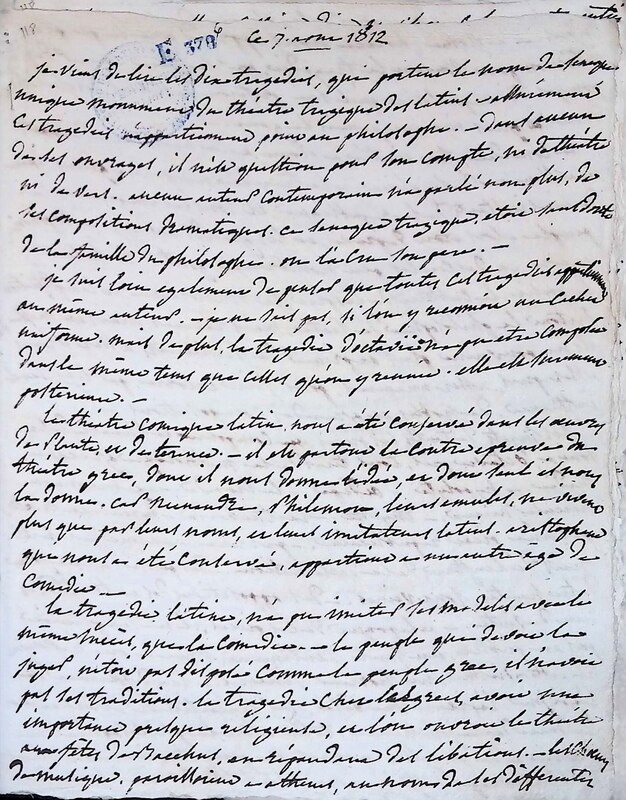 118
E 378
Ce 7. aout 1812
je viens de lire les dix tragedies, qui portent le nom de seneque
unique monument du théatre tragique des latins - assurément
ces tragedies n'appartiennent point au philosophe. - dans aucun
de ses ouvrages, il n'est question pour son compte, ni de théatre
ni de vers. aucun auteur contemporain n'a parlé non plus, de
ses compositions dramatiques. ce seneque tragique, etoit sans doute
de la famille du philosophe. on l'a cru son pere. -
je suis loin egalement de penser que toutes ces tragedies appartiennent
au même auteur. - je ne sais pas, si l'on y reconnoit un cachet
uniforme. mais de plus, la tragedie d'octavie n'a pu etre composée
dans le même tems que celles qu'on y reunit. elle est surement
posterieure. -
le théatre comique latin, nous a été conservé dans les œuvres
de Plaute, et de terence. - il est partout la contre epreuve du
théatre grec, dont il nous donne l'idée, et dont seul il nous
la donne. car Menandre, Philemon, leurs emules, ne vivent
plus que par leurs noms, et leurs imitateurs latins. aristophane
que nous a été conservé, appartient a un autre âge de
comedie. -
la tragedie latine, n'a pu imiter ses modeles avec le
même succès, que la comedie. - le peuple qui devoit la
juger, n'etoit pas disposé comme le peuple grec, il n'avoit
pas ses traditions. la tragedie chez les grecs, avoit une
importance presque religieuse, et l'on ouvroit le théatre
aux fêtes de Bacchus, en répandant des libations. - les chœurs
de musique, paroissoient a athenes, au nom de les differentes